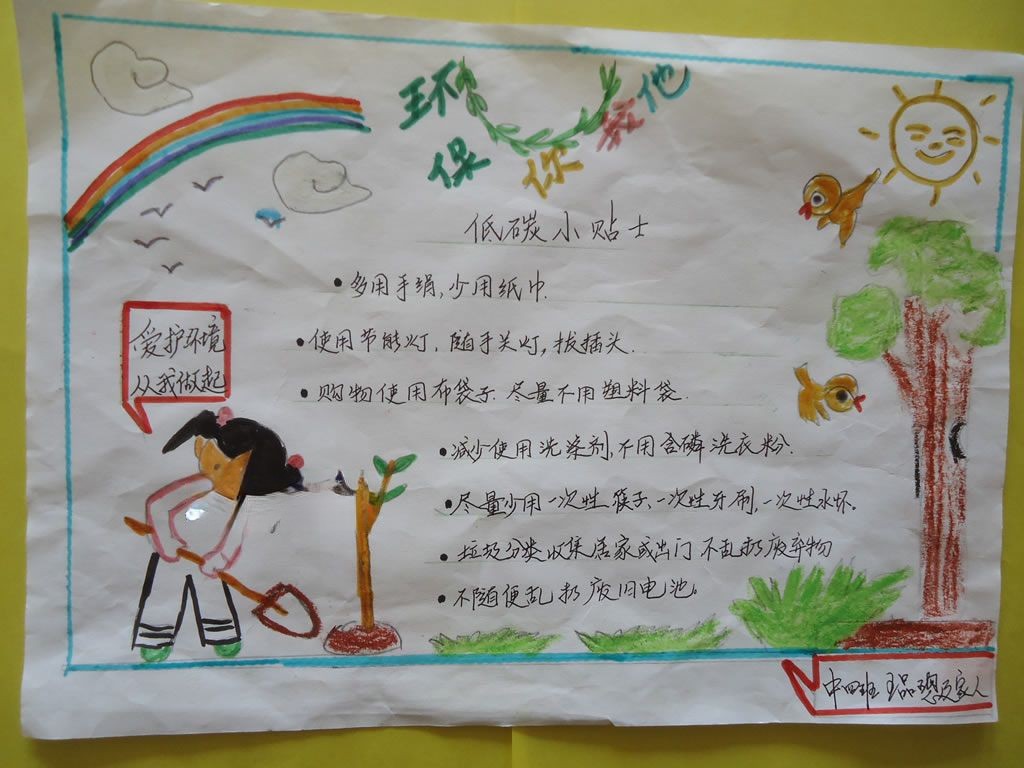 环保你我他
低碳小贴士
•多用手绢,少用纸巾.
•使用节能灯,随手关灯,拔插头.
•购物使用布袋子.尽量不用塑料袋.
•减少使用洗涤剂,不用含磷洗衣粉.
•尽量少用一次性筷子、一次性牙刷,一次性水杯。
•垃圾分类收集居家或出门不乱扔废弃物
•不随便乱扔废旧电池。
爱护环境
从我做起
中四班 及家人